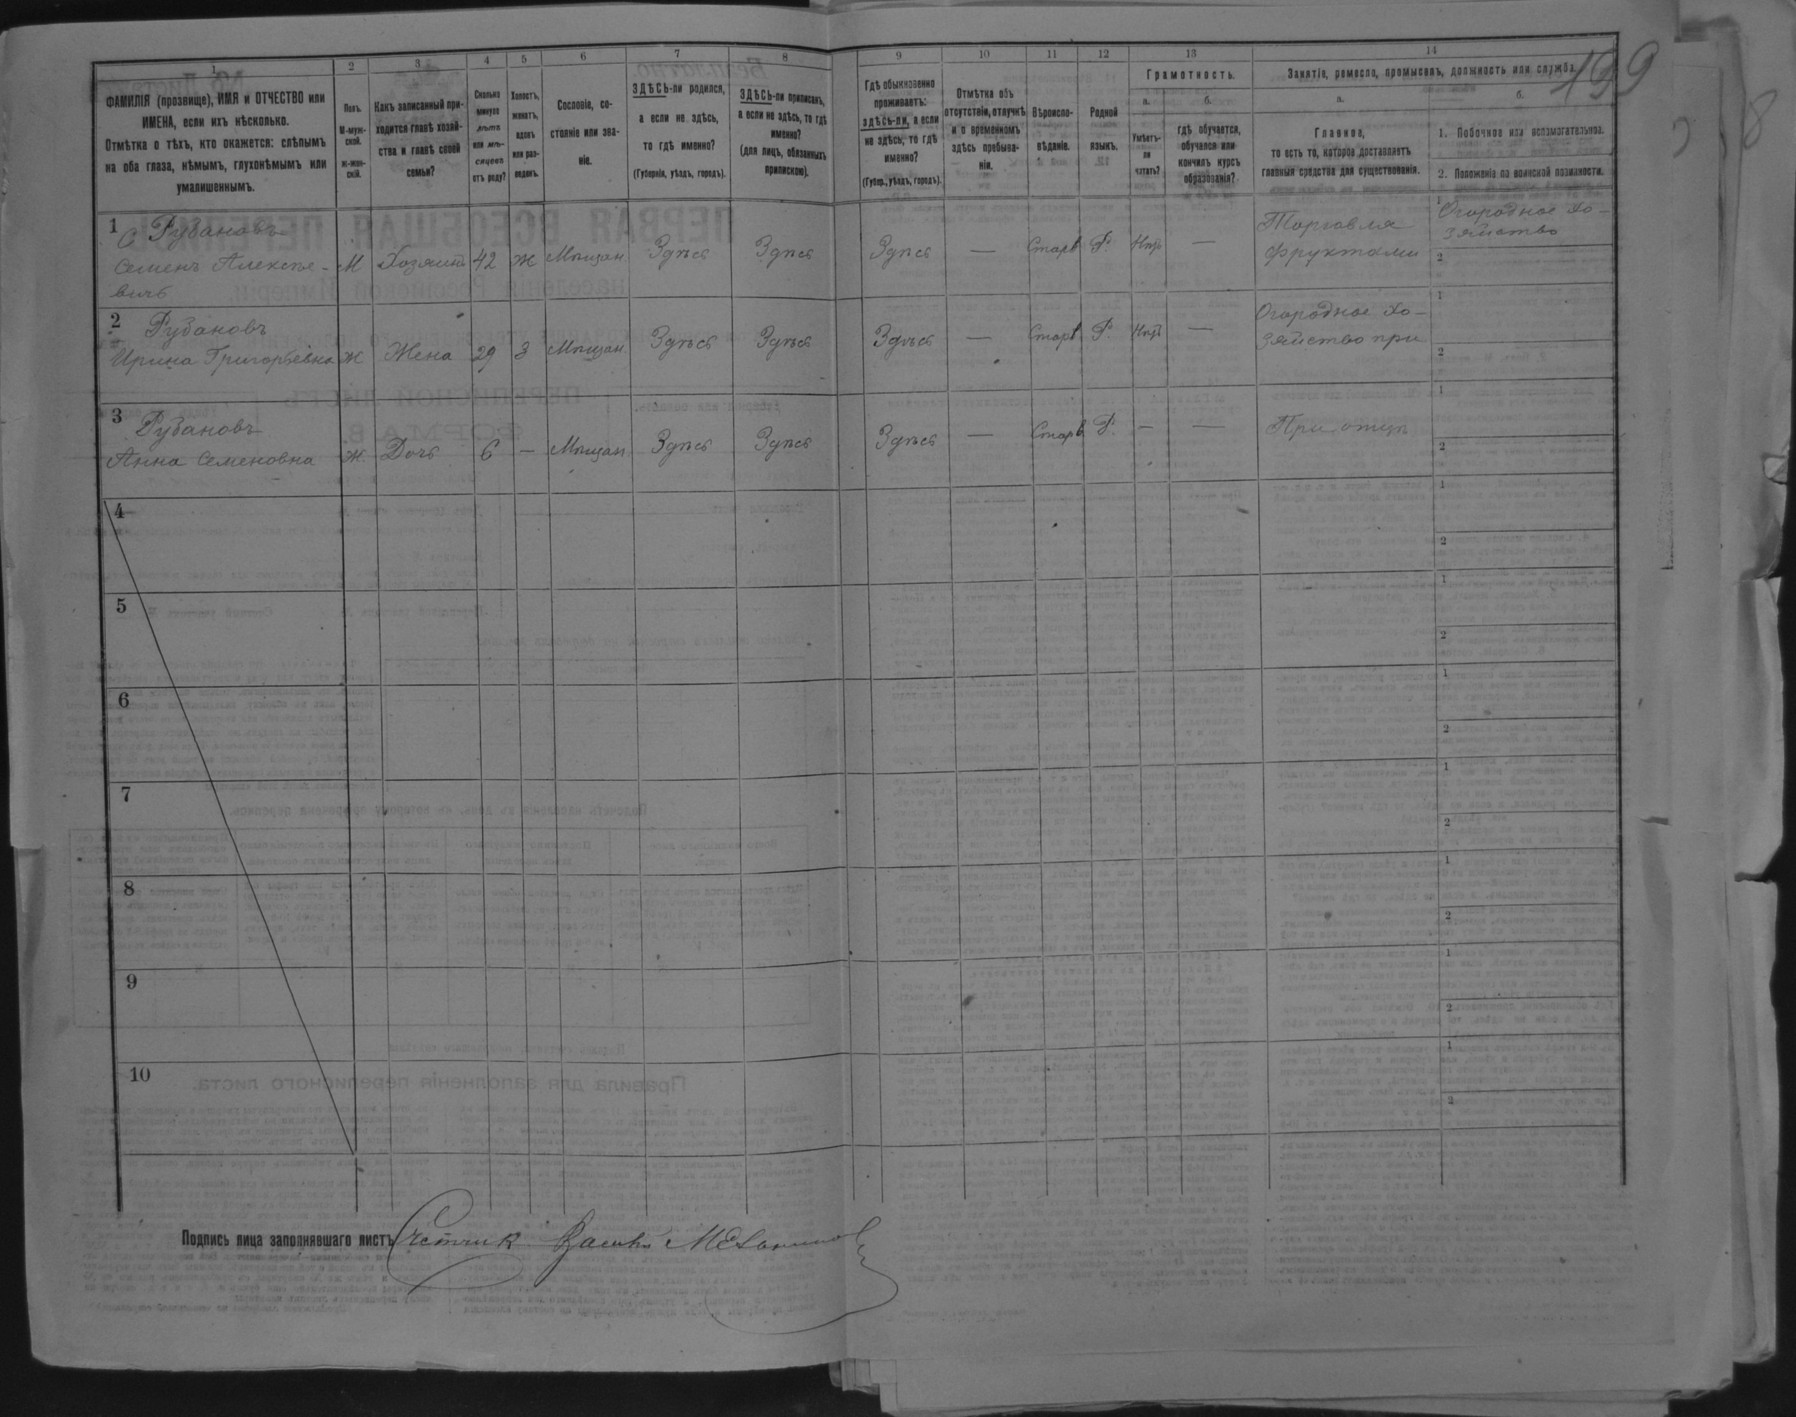 199
1
2
3
4
5
6
7
8
9
10
11
12
13
14
ФАМИЛІЯ (прозвище), ИМЯ и ОТЧЕСТВО или
ИМЕНА, если ихъ нѣсколько.
Отмѣтка о тѣхъ, кто окажется: слѣпымъ
на оба глаза, нѣмымъ, глухонѣмымъ или
умалишеннымъ.
Полъ.
М-муж-
ской.
Ж-жен-
скій.
Какъ записанный при-
ходится главѣ хозяй-
ства и главѣ своей
семьи?
Сколько
минуло
лѣтъ
или мѣ-
сяцевъ
отъ роду?
Холостъ,
женатъ,
вдовъ
или раз-
веденъ.
Сословіе, со-
стояніе или зва-
ніе.
ЗДѢСЬ-ли родился,
а если не здѣсь,
то гдѣ именно?
(Губернія, уѣздъ, городъ).
ЗДѢСЬ-ли приписанъ,
а если не здѣсь, то гдѣ
именно?
(для лицъ, обязанныхъ
припискою).
Гдѣ обыкновенно
проживаетъ:
здѣсь-ли, а если
не здѣсь, то гдѣ
именно?
(Губер., уѣздъ, городъ).
Отмѣтка объ
отсутствіи, отлучкѣ
и о временномъ
здѣсь пребыва-
ніи.
Вѣроиспо-
вѣданіе.
Родной
языкъ.
Грамотность.
а.
Умѣетъ-
ли
читать?
б.
гдѣ обучается,
обучался или
кончилъ курсъ
образованія?
Занятіе, ремесло, промыселъ, должность или служба.
а.
Главное,
то есть то, которое доставляетъ
главныя средства для существованія.
б.
1. Побочное или вспомогательное.
2. Положеніе по воинской повинности.
1 Рубановъ
Семенъ Алексѣе-
вичъ
М Хозяинъ 42 Ж Мѣщан Здѣсь Здѣсь Здѣсь — Старв Р. Нѣт —
Торговля
фруктами
1 Огородное хо-
зяйство
2
2 Рубановъ
Ирина Григорьевна Ж Жена 29 З Мѣщан Здѣсь Здѣсь Здѣсь — Старв Р. Нѣт —
Огородное хо-
зяйство при
1
2
3 Рубановъ
Анна Семеновна Ж. Дочь 6 — Мѣщан Здѣсь Здѣсь Здѣсь — Старв Р. — — При отцѣ
1
2
4
1
2
5
1
2
6
1
2
7
1
2
8
1
2
9
1
2
10
1
2
Подпись лица заполнявшаго листъ Счетчик